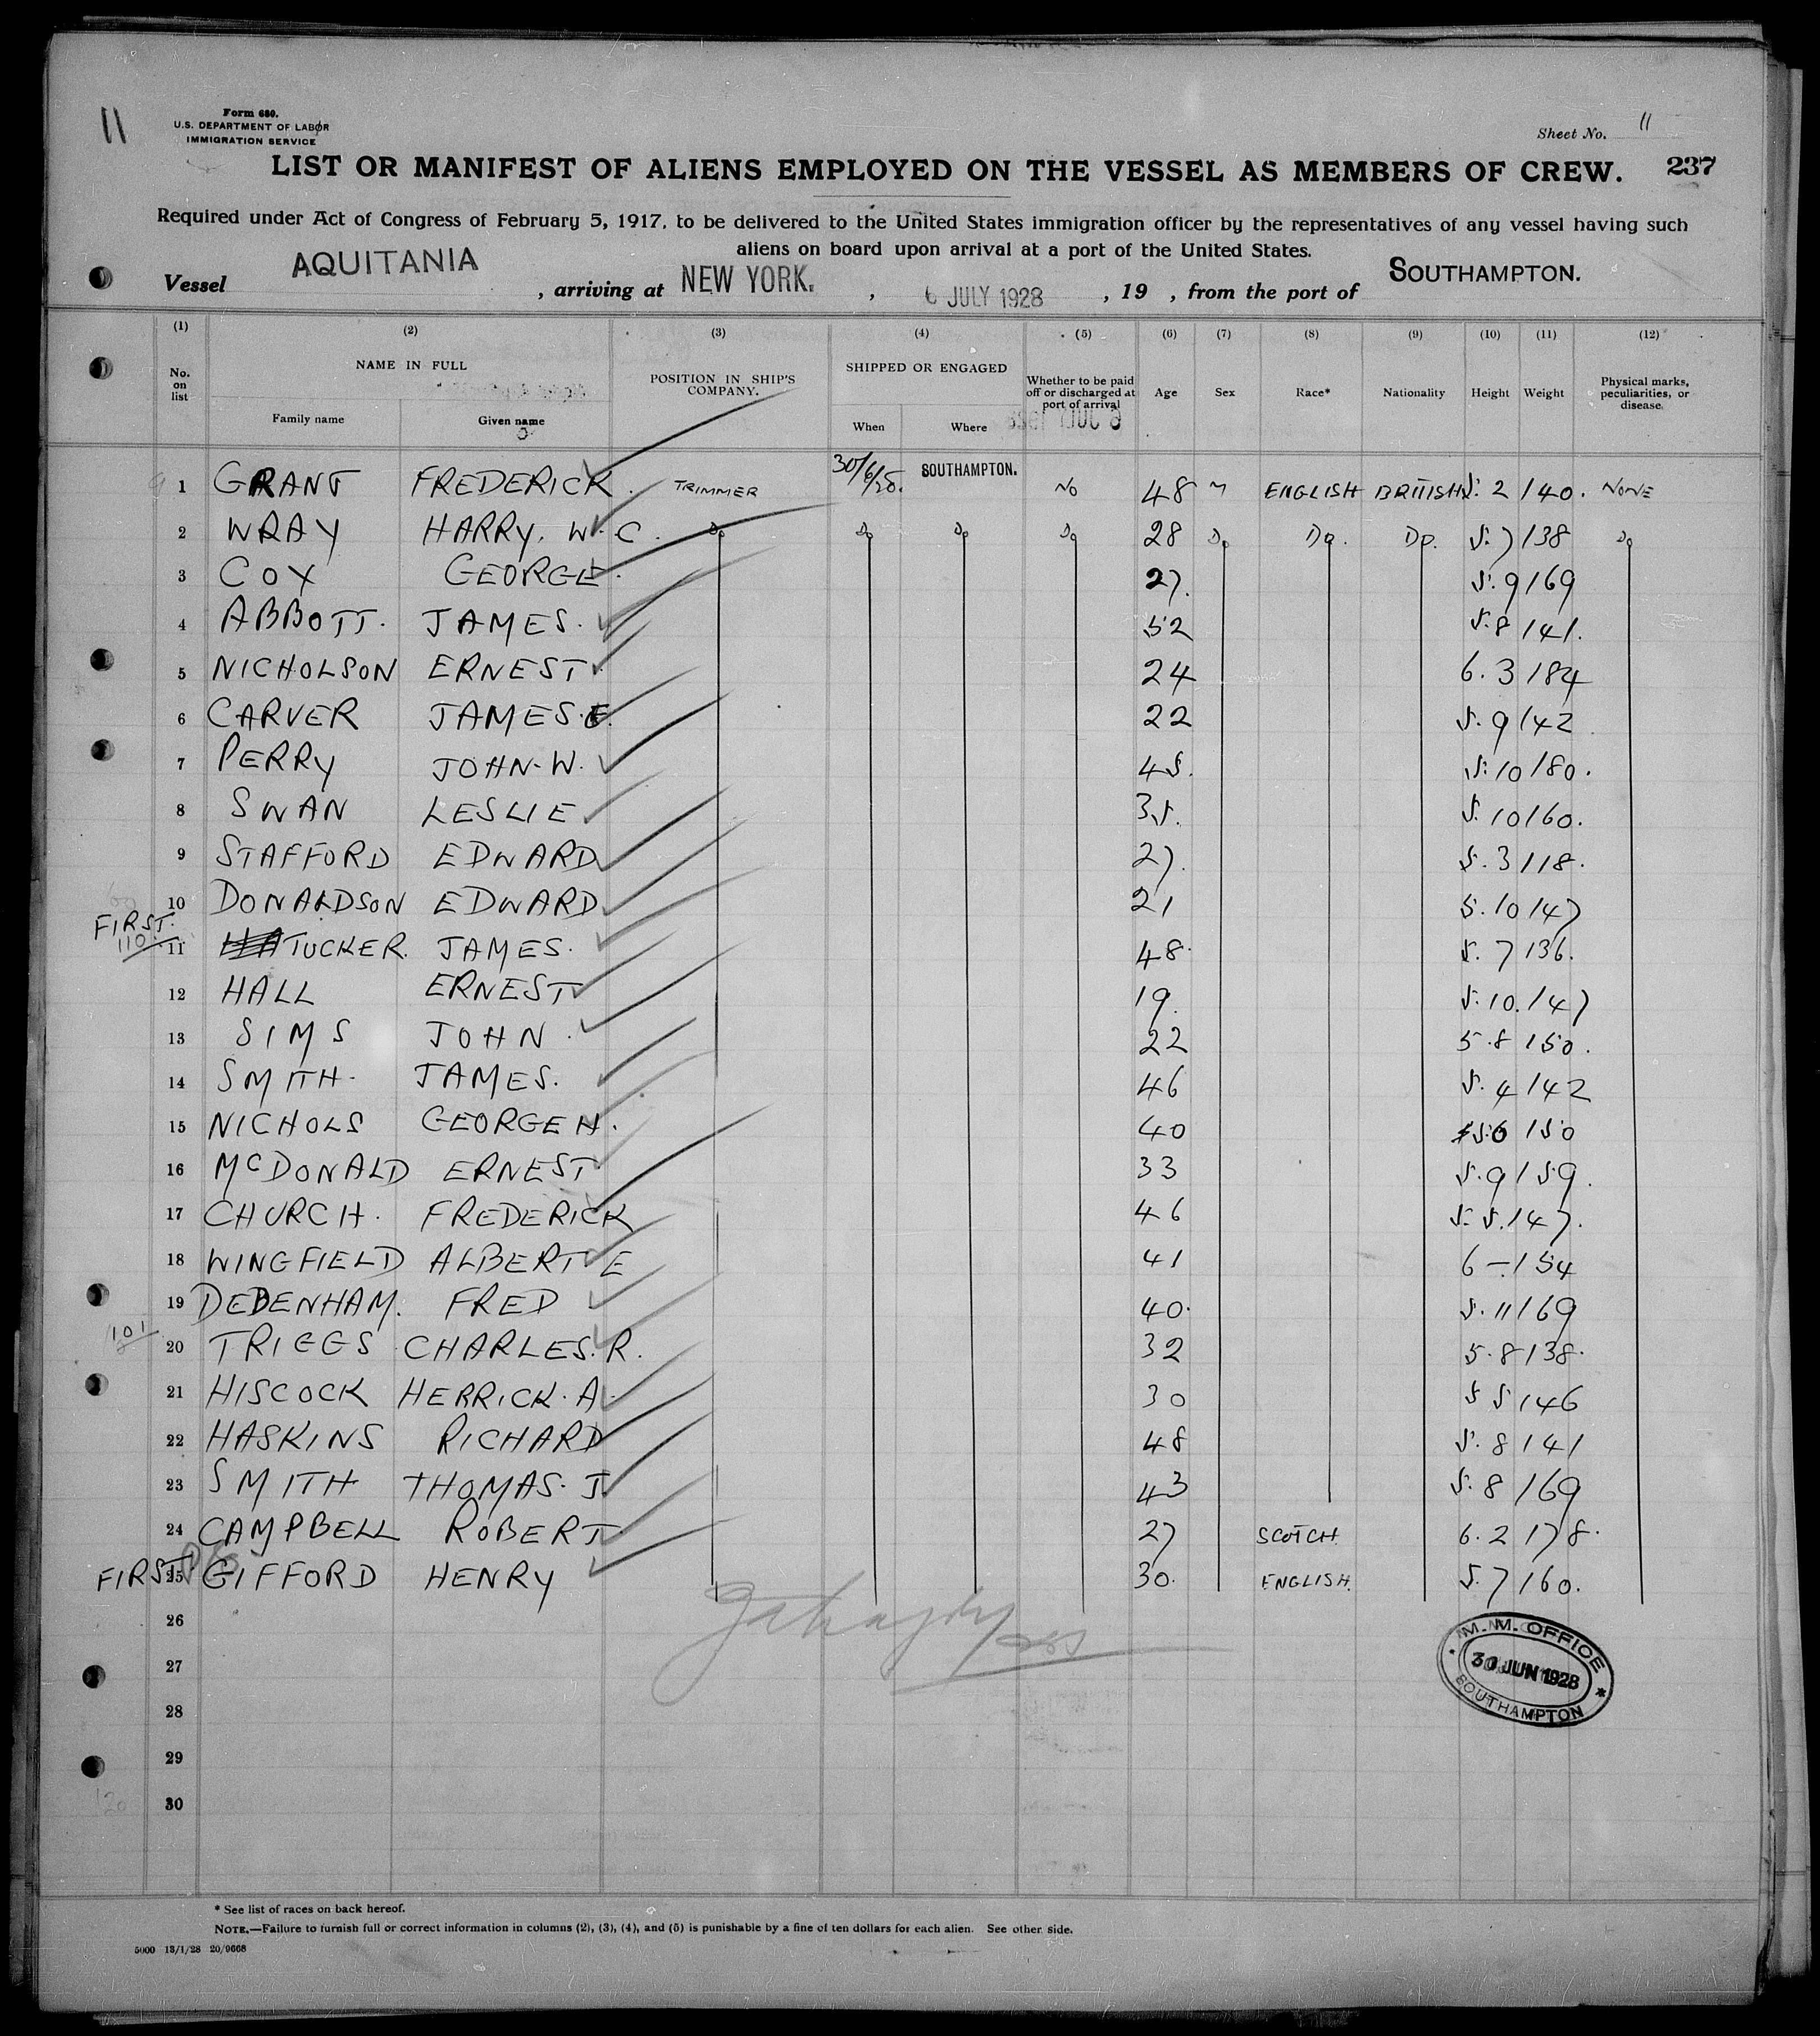 11
Form 680.
U.S. DEPARTMENT OF LABOR
IMMIGRATION SERVICE
Sheet No. 11
LIST OR MANIFEST OF ALIENS EMPLOYED ON THE VESSEL AS MEMBERS OF CREW. 237
Required under Act of Congress of February 5, 1917, to be delivered to the United States immigration officer by the representatives of any vessel having such
aliens on board upon arrival at a port of the United States.
Vessel AQUITANIA, arriving at NEW YORK., 6 JULY 1928, 19 , from the port of SOUTHAMPTON.
(1) (2) (3) (4) (5) (6) (7) (8) (9) (10) (11) (12)
No. on list NAME IN FULL Family name Given name POSITION IN SHIP'S COMPANY. SHIPPED OR ENGAGED When Where Whether to be paid off or discharged at port of arrival Age Sex Race* Nationality Height Weight Physical marks, peculiarities, or disease.
1 GRANT FREDERICK. TRIMMER 30/6/28. SOUTHAMPTON. No 48 M ENGLISH BRITISH 5. 2 140. NONE
2 WRAY HARRY. W. C. Do Do Do Do 28 Do Do. Do. 5. 7 138 Do
3 COX GEORGE. 27. 5. 9 169
4 ABBOTT. JAMES. 52 5. 8 141.
5 NICHOLSON ERNEST 24 6. 3 184
6 CARVER JAMES. E. 22 5. 9 142
7 PERRY JOHN-W. 45. 5. 10 180.
8 SWAN LESLIE 35. 5. 10 160.
9 STAFFORD EDWARD 27. 5. 3 118.
10 DONALDSON EDWARD 21 5. 10 147
FIRST. 110.
11 TUCKER. JAMES. 48. 5. 7 136.
12 HALL ERNEST 19. 5. 10. 147
13 SIMS JOHN. 22 5. 8 150.
14 SMITH. JAMES. 46 5. 4 142
15 NICHOLS GEORGE H. 40 5. 6 150
16 McDONALD ERNEST 33 5. 9 159.
17 CHURCH. FREDERICK 46 5. 5. 147.
18 WINGFIELD ALBERT E 41 6 — 154
19 DEBENHAM. FRED 40. 5. 11 169
101
20 TRIGGS CHARLES. R. 32 5. 8 138.
21 HISCOCK HERRICK. A. 30 5 5 146
22 HASKINS RICHARD 48 5. 8 141
23 SMITH THOMAS. J. 43 5. 8 169
24 CAMPBELL ROBERT 27 SCOTCH. 6. 2 178.
FIRST.
25 GIFFORD HENRY 30. ENGLISH. 5. 7 160.
26
27
28
29
30
M. M. OFFICE
30 JUN 1928
SOUTHAMPTON
* See list of races on back hereof.
NOTE.—Failure to furnish full or correct information in columns (2), (3), (4), and (5) is punishable by a fine of ten dollars for each alien. See other side.
5000 13/1/28 20/9668